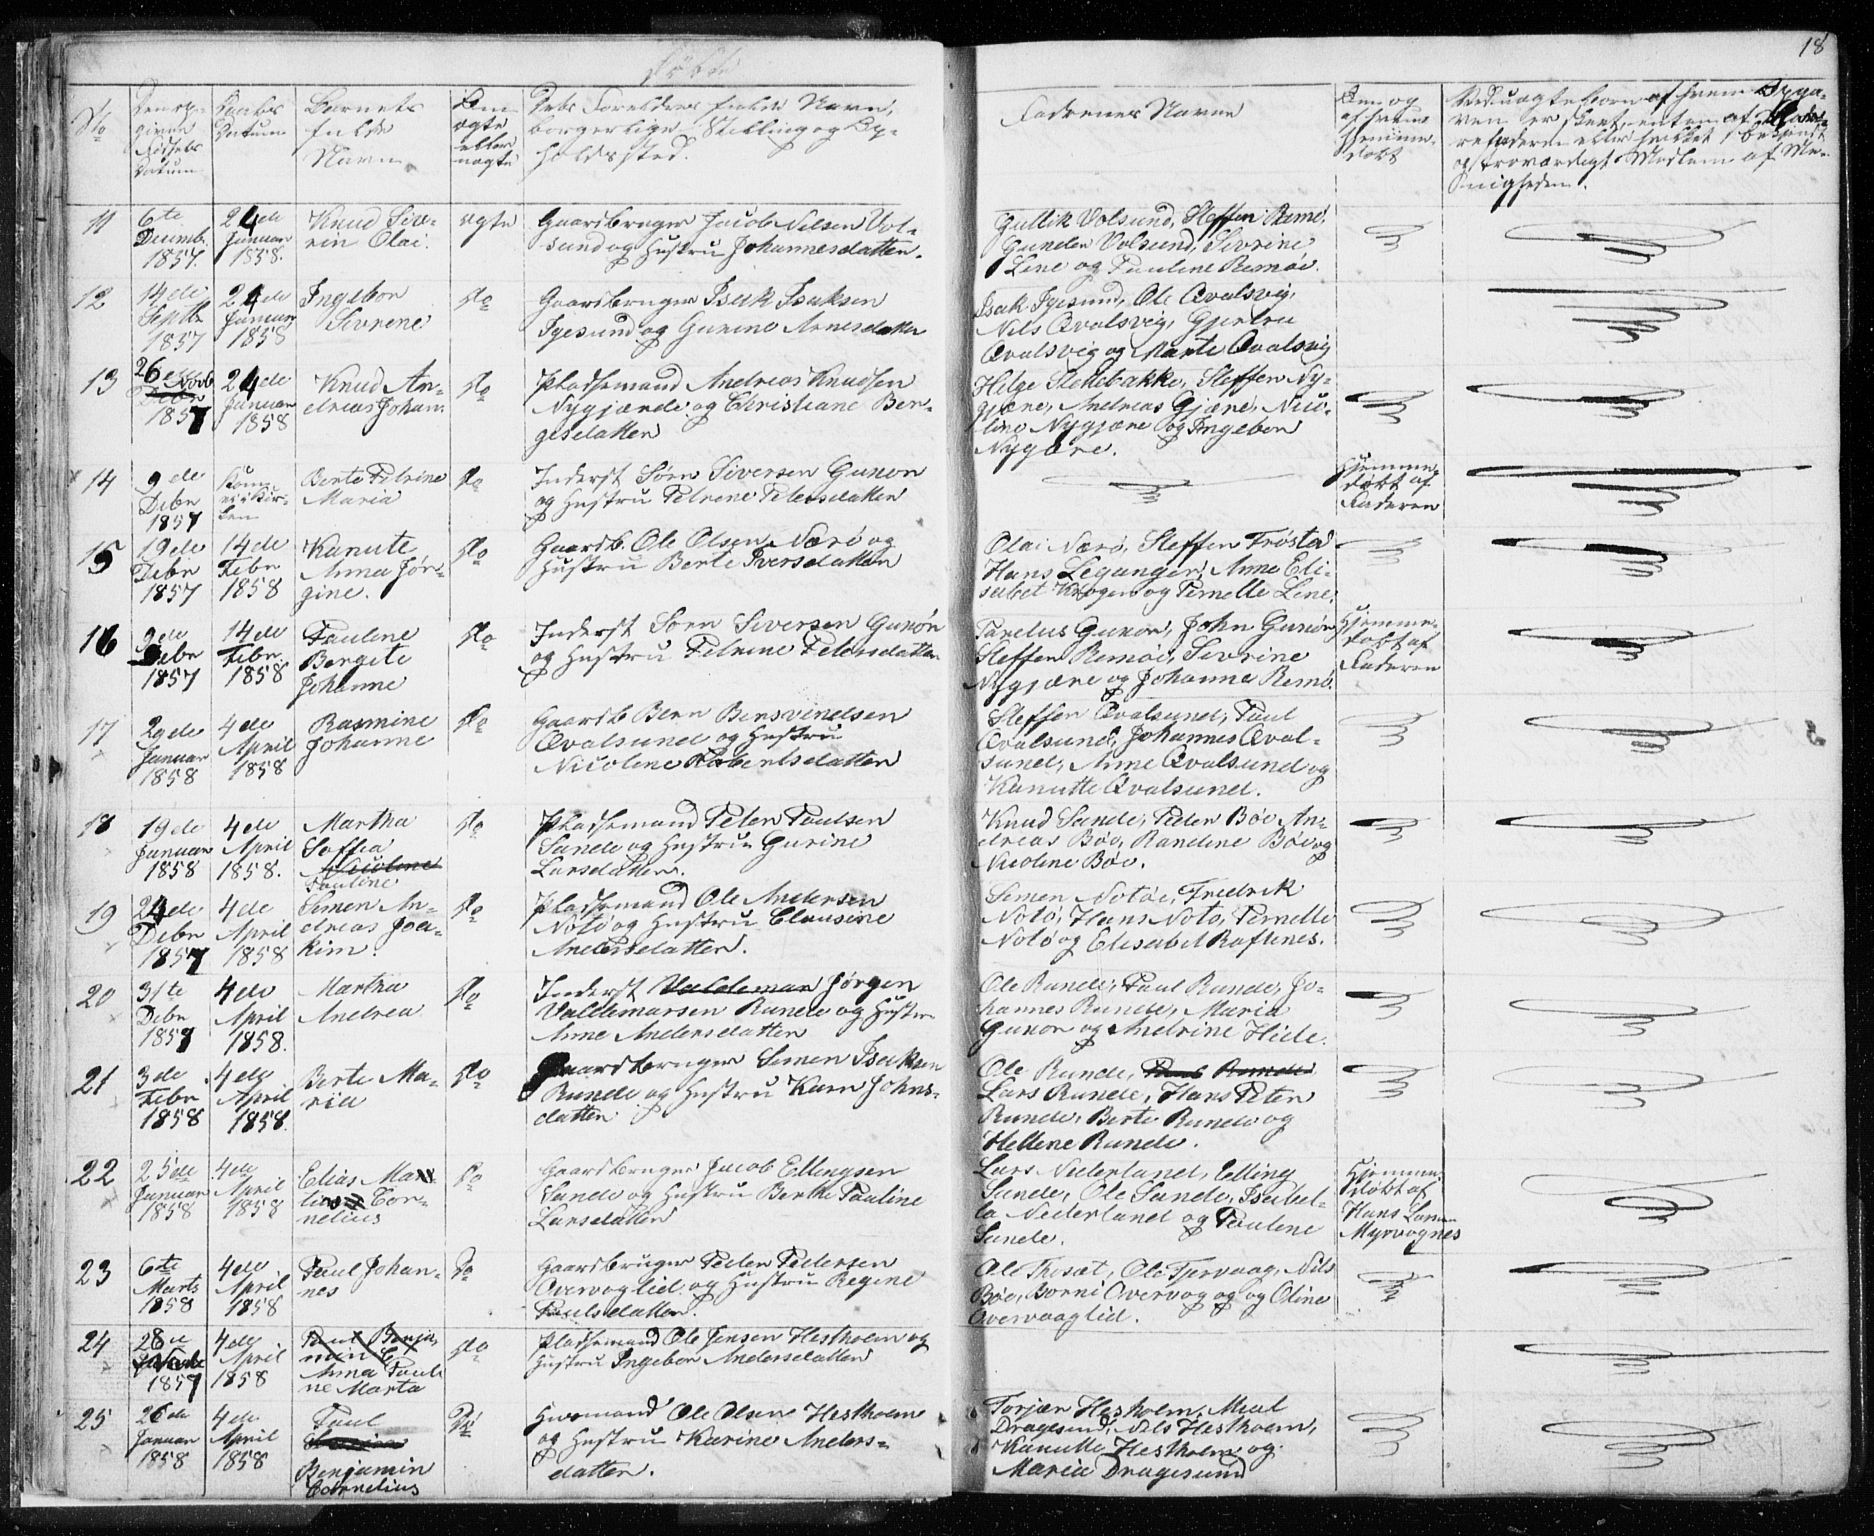 18
Døbte
No
Den op-
given
Fødsels
Datum
Daabs
Datum
Barnets
fulde
Navn
Om
ægte
eller
uægte
Dets Forældres fulde Navn,
borgerlige Stilling og Op-
holdssted.
Fadrenes Navne
Om og
af hvem
hjemme-
døbt
11
6te
Decemb.
1857.
24de
Januar
1858.
Knud Sive-
rin Olai.
ægte
Gaardbruger Jacob Nilsen Vol-
sund og Hustru Johannesdatter.
Gullik Volsund, Steffen Remø,
Gunder Volsund, Sivrine
Line og Pauline Remøi.
12
14de
Septb
1857
24de
Januar
1858
Ingebor
Sivrene
do
Gaardbruger Isak Isaksen
Igesund og Gurine Arnesdatter
Isak Igesund, Ole Qvalsvig,
Nils Qvalsvig, Gjertru
Qvalsvig og Marte Qvalsvig
13
26de Novb
Debr
1857
24de
Januar
1858
Knud An-
dreas Johan.
do
Pladsemand Andreas Knudsen
Nygjærde og Christiane Ben-
gesdatter
Helge Stokebakke, Steffen Ny-
gjære, Andreas Gjære, Nico-
line Nygjære og Ingebor
Nygjære.
14
9de
Debr
1857
Kom
ei i Kir-
ken
Berte Petrine
Maria
do
Inderst Sørn Siversen Gunøn
og Hustru Petrine Petersdatter
Hjemme-
døbt af
Faderen
15
19de
Debr
1857
14de
Febr
1858
Kanute
Anna Jør-
gine.
do
Gaardb. Ole Olsen Nærø og
Hustru Berte Iversdatter
Olai Nærø, Steffen Frøstad
Hans Leganger, Anne Eli-
sabet Kroger og Pernelle Line.
16
9de
Debr
1857
14de
Febr
1858
Pauline
Bergite
Johanne
do
Inderst Sørn Siversen Gunøn
og Hustru Petrine Petersdatter
Parelius Gunøn, John Gunøn
Steffen Remøi, Sevrine
Nygjære og Johanne Remø.
Hjemme-
døbt af
Faderen
17
29de
Januar
1858
4de
April
1858
Rasmine
Johanne
do
Gaardb Bern Bersvendsen
Qvalsund og Hustru
Nicoline Robertsdatter
Steffen Qvalsund, Paul
Qvalsund, Johannes Qval-
sund, Anne Qvalsund og
Kanutte Qvalsund.
18
19de
Januar
1858
4de
April
1858.
Martha
Soffia
Nicoline
Pauline
do
Pladsemand Peter Paulsen
Sande og Hustru Gurine
Larsdatter.
Knud Sande, Peder Bøe An-
dreas Bøe, Randine Bøe og
Nicoline Bøe.
19
24de
Debr
1857
4de
April
1858
Simen An-
dreas Joa-
kim.
do
Pladsemand Ole Andersen
Notø og Hustru Clausine
Andersdatter.
Simen Notøe, Fredrik
Notø, Hans Notø, Pernelle
Notø og Elisabet Raftenes.
20
31te
Debr
1857
4de
April
1858.
Martha
Andrea
do
Inderst Valdemar Jørgen
Valdemarsen Runde og Hustru
Anne Andersdatter
Ole Runde, Paul Runde, Jo-
hannes Runde, Maria
Gunøn og Andrine Hide.
21
3de
Febr
1858
4de
April
1858.
Berte Ma-
ria
do
Gaardbruger Simen Isaksen
Runde og Hustru Karn Johns-
datter
Ole Runde, Paul Runde
Lars Runde, Hans Peter
Runde, Berte Runde og
Hellene Runde.
22
25de
Januar
1858
4de
April
1858
Elias Mar-
tinus Cor-
nelius
do
Gaardbruger Jacob Ellingsen
Sande og Hustru Berthe Pauline
Larsdatter
Lars Nederland, Elling
Sande, Ole Sande, Isabel-
la Nederland og Pauline
Sande.
Hjemme-
døbt af
Hans Larsen
Myrvognes
23
6te
Marts
1858
4de
April
1858
Paul Johan-
nes
Do
Gaardbruger Peder Pedersen
Overvoglid og Hustru Regine
Paulsdatter.
Ole Frosæt, Ole Tjervaag, Nils
Bøe, Borni Overvog og og Oline
Overvaaglid.
24
28de
1857
4de
April
1858
Paul Benja-
min C
Anna Pauli
ne Marta
do
Pladsemand Ole Jensen Hestholm og
Hustru Ingebor Andersdatter
25
26de
Januar
1858
4de
April
1858
Paul
Benjamin
Cornelius
Do
Husmand Ole Olsen Hestholm
og Hustru Karine Anders-
datter.
Torjær Hesholm, Mial
Dragesund, Nils Hestholm,
Kanutte Hestholm og
Maria Dragesund